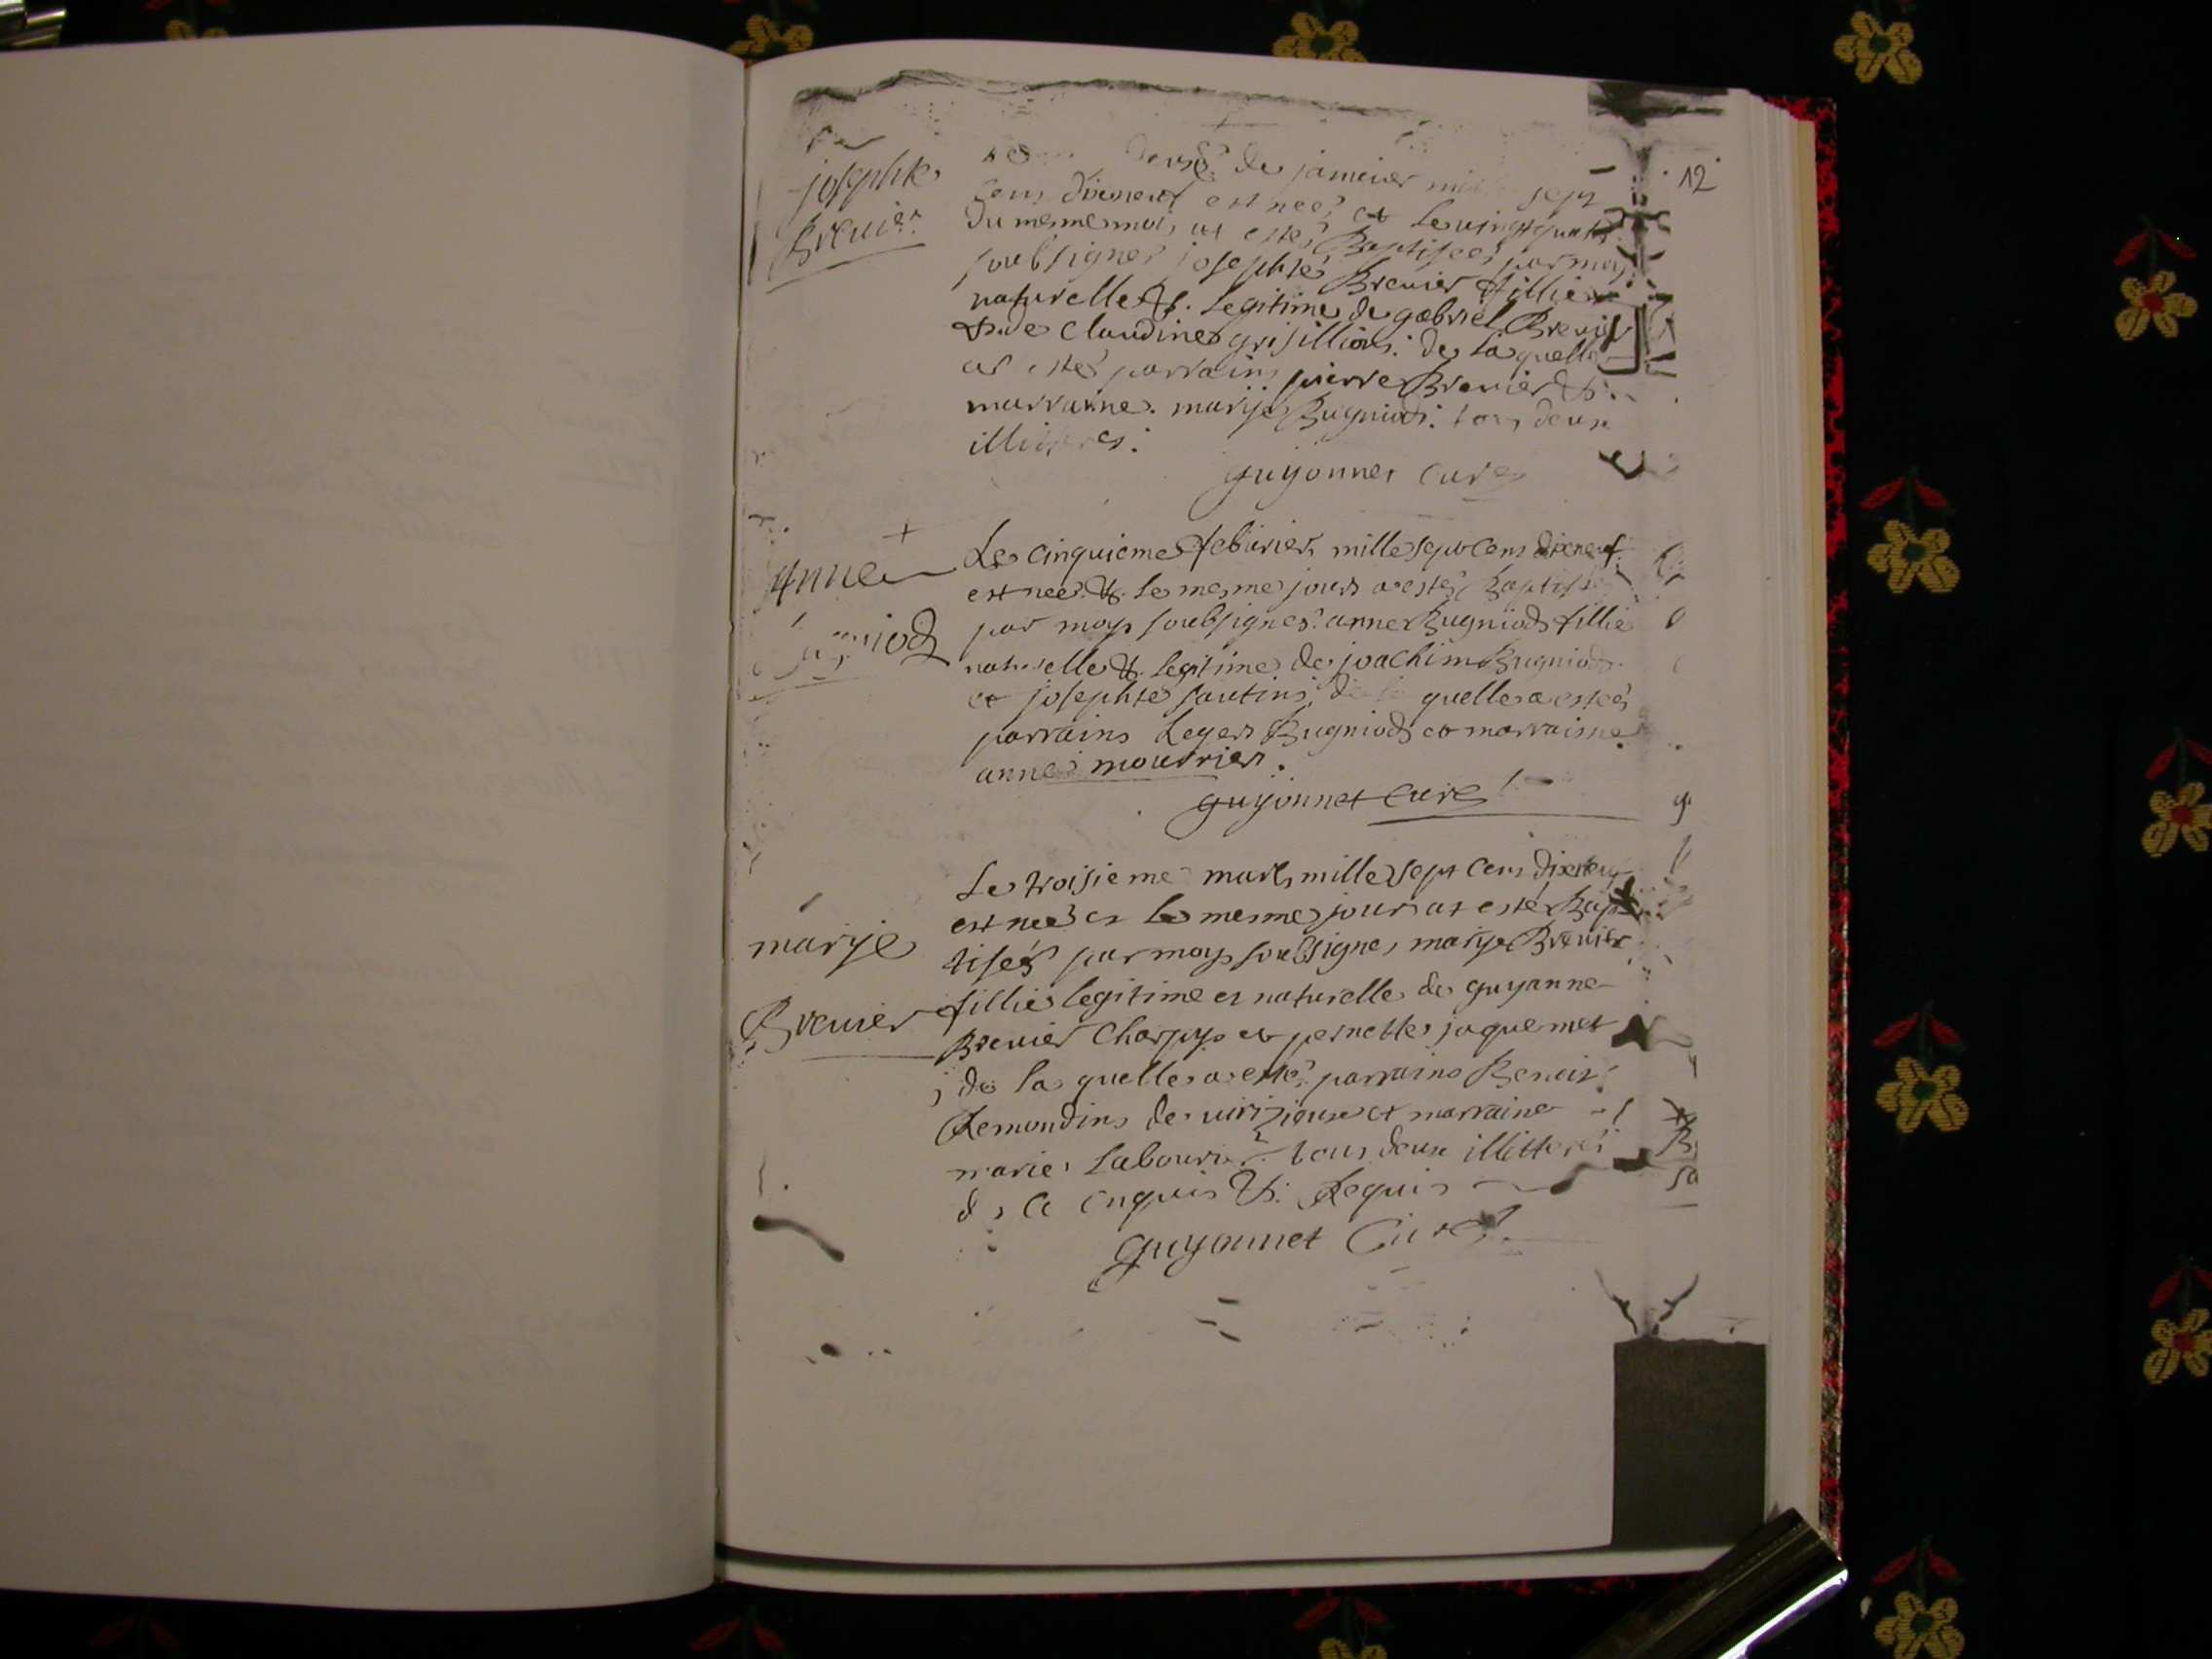 12
josephte
Brevier
de janvier sept
Cens dixneuf est neeé et Le vingt quatre
du mesme mois at estes Baptiseé par moy
soubsignes josephte Brevier fillie
naturelle &. Legitime de gabriel Brevier
&. de Claudine grisillion: de La quelle
at estes parrain pierre Brevier &.
marranne. marije Bugniod: tous deux
illitteres:
guyonnet Cure
Anne
Le Cinquieme febvrier mille sept Cens dixneuf
est neé &. Le mesme jours a estes Baptiseé
par moy soubsignes anne Bugniod fillie
naturelle &. Legitime de joachim Bugniod
et josephte sautin; de la quelle a esteé
parrains Leger Bugniod et marraisne
anne mourrier.
guyonnet Cure
Le troisieme mars mille sept Cens dixneuf
est neé et Le mesme jour at esté Bap
marije
tiseé par moy soubsigne marije Brevier
fillie legitime et naturelle de guyanne
Brevier
Brevier Charpy et pernette jaquemet
de La quelle a esté parrains Benoit
Remondins de virizieux et marraine
marie Labourier tous deux illitteres
de Ce Enquis &. Requis
Guyonnet Curé